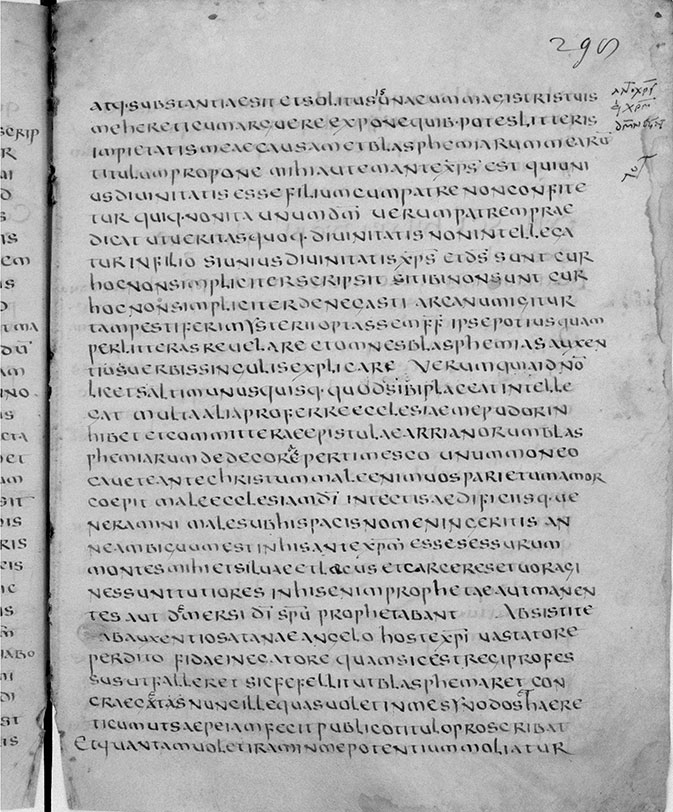 atq· substantiae sit et solitus is una cum magistris tuis
me hereticum arguere expone quib· potes litteris
impietatis meae causam et blasphemiarum mearū
titulum propone mihi autem antexps̄ est qui uni
us divinitatis esse filium cum patre non confite
tur quiq· non ita unum dm̄ verum patrem prae
dicat ut veritas quoq· divinitatis non intellega
tur in filio si unius divinitatis xps̄ et ds̄ sunt cur
hoc non simpliciter scripsit si tibi non sunt cur
hoc non simpliciter denegasti arcanum igitur
tam pestiferi mysterii optassem ff̄ ipse potius quam
per litteras revelare et omnes blasphemias auxen
tius verbis singulis explicare Verum quia id nō
licet saltim unusquisq· quod sibi placeat intelle
gat multa alia proferre ecclesiae me pudor in
hibet et committere epistulae arrianorum blas
phemiarum dedecore pertimesco unum moneo
cavete antechristum male enim vos parietum amor
coepit male ecclesiam dī in tectis aedificiisq· ve
neramini male sub his pacis nomen ingeritis an
ne ambiguum est in his antexpm̄ esse sessurum
montes mihi et silvae et lacus et carceres et voragi
nes sunt tutiores in his enim prophetae aut manen
tes aut demersi dī spū prophetabant Absistite
ab auxentio satanae angelo hoste xpī vastatore
perdito fidae inegatore quam sic est regi profes
sus ut falleret sic fefellit ut blasphemaret con
greget as nunc ille quas volet in me synodos haere
ticum ut saepe iam fecit publico titulo proscribat
Et quantam volet iram in me potentium moliatur